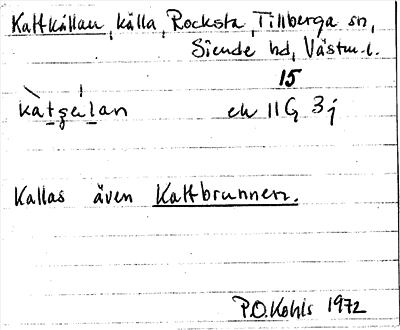 Kattkällan, källa, Rocksta, Tillberga sn,
Siende hd, Västm. l.
15
katɕälan ek 11G 3j
Kallas även Kattbrunnen.
P.O. Kohls 1972